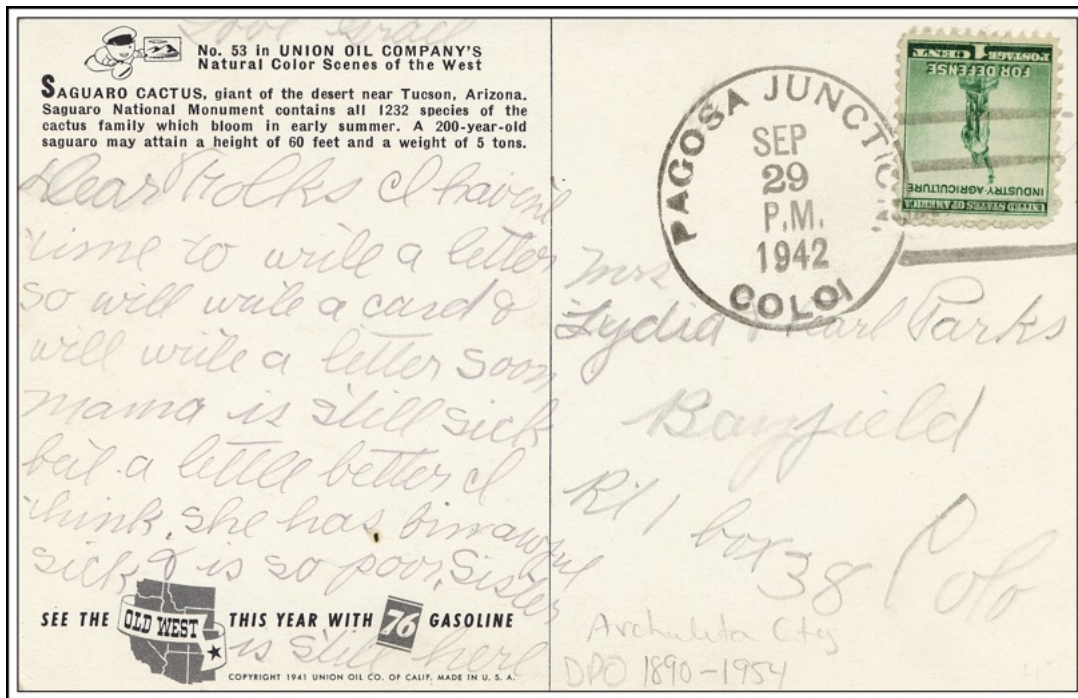 Love Grace
No. 53 in UNION OIL COMPANY'S
Natural Color Scenes of the West
SAGUARO CACTUS, giant of the desert near Tucson, Arizona.
Saguaro National Monument contains all 1232 species of the
cactus family which bloom in early summer. A 200-year-old
saguaro may attain a height of 60 feet and a weight of 5 tons.
Dear Folks I haven't
time to write a letter
so will write a card &
will write a letter soon
mama is still sick
but a little better I
think. She has bin awful
sick & is so poor. Sister
is still here
SEE THE OLD WEST THIS YEAR WITH 76 GASOLINE
COPYRIGHT 1941 UNION OIL CO. OF CALIF. MADE IN U. S. A.
PAGOSA JUNCTION
SEP
29
P.M.
1942
COLO
1 CENT POSTAGE
FOR DEFENSE
INDUSTRY AGRICULTURE
UNITED STATES OF AMERICA
Mrs
Lydia Pearl Parks
Bayfield
Rt 1 box 38 Colo
Archuleta Cty
DPO 1890-1954